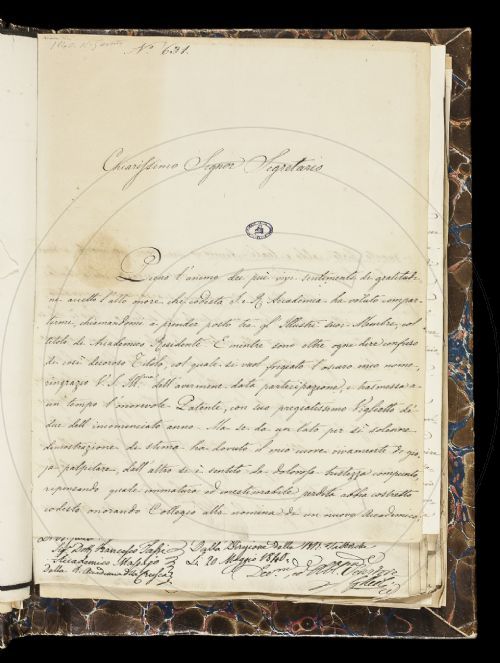 1840. 15. Giugno
N.° 631.
Chiarissimo Signor Segretario
Pieno l'animo dei più vivi sentimenti di gratitudi-
ne accolto l'alto onore, che codesta I. e R. Accademia ha voluto compar-
tirmi, chiamandomi a prender posto tra gl'Illustri suoi Membri, col
titolo di Accademico Residente. E mentre sono oltre ogni dire confuso
di così decoroso Titolo, col quale si vuol fregiato l'oscuro mio nome,
ringrazio V. S. Ill.ma dell'avermene data partecipazione, e trasmessa a
un tempo l'onorevole Patente, con suo pregiatissimo Biglietto de'
due dell'incominciato anno. Ma se da un lato per sì solenne
dimostrazione di stima ha dovuto il mio cuore vivamente di gio-
ja palpitare, dall'altro si è sentito da dolorosa tristezza compunto,
ripensando quale immatura ed inestimabile perdita abbia costretto
codesto onorando Collegio alla nomina di un nuovo Accademico.
Sig. Dott. Francesco Tassi
Accademico
della R. Accademia della Crusca
Dalla Direzione della
Li 20 Maggio 1840.